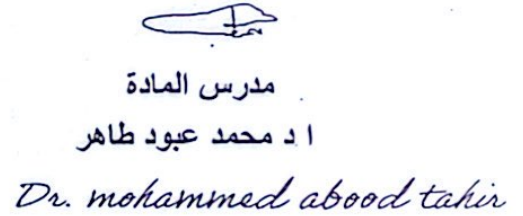 مدرس المادة
ا د محمد عبود طاهر
Dr. mohammed abood tahir